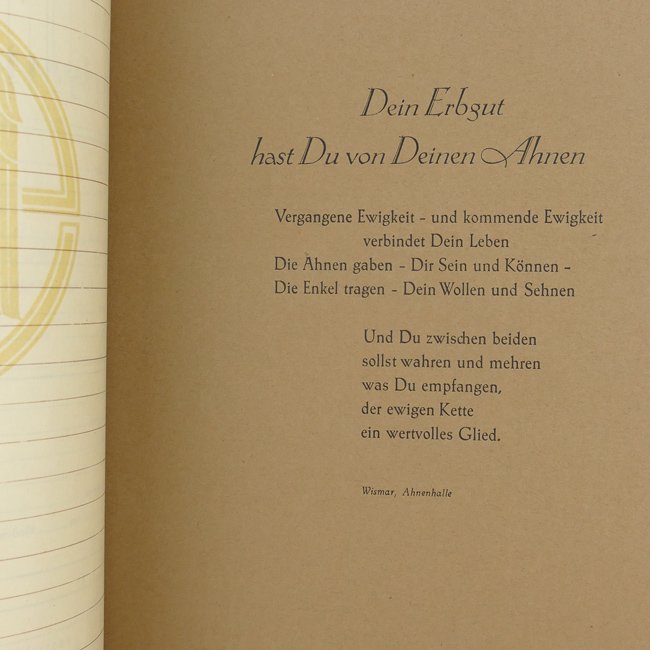 Dein Erbgut
hast Du von Deinen Ahnen
Vergangene Ewigkeit - und kommende Ewigkeit
verbindet Dein Leben
Die Ahnen gaben - Dir Sein und Können -
Die Enkel tragen - Dein Wollen und Sehnen
Und Du zwischen beiden
sollst wahren und mehren
was Du empfangen,
der ewigen Kette
ein wertvolles Glied.
Wismar, Ahnenhalle